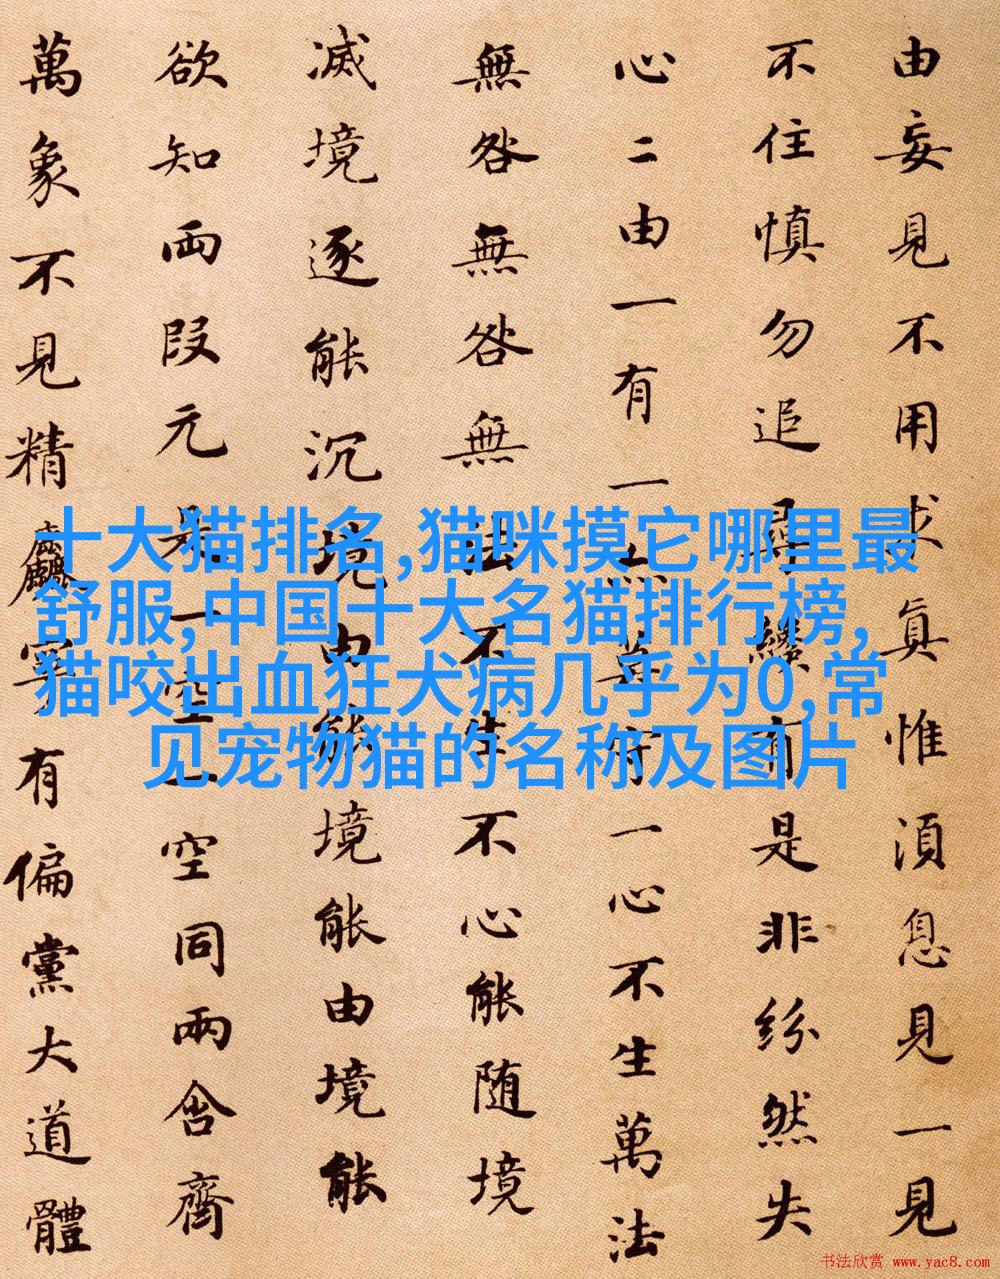 由妄見不用求眞惟須息見一見
不住慎勿追尋纔有是非紛然失
心二由一有一亦莫守一心不生萬法
無咎無咎無法不生不心能随境
滅境逐能沉境由能境能由境能
欲知両段元是一空一空同兩含齊
萬象不見精麤寧有偏黨大道體
十大猫排名,猫咪摸它哪里最
舒服,中国十大名猫排行榜,
猫咬出血狂犬病几乎为0,常
见宠物猫的名称及图片
书法欣赏 www.yac8.com